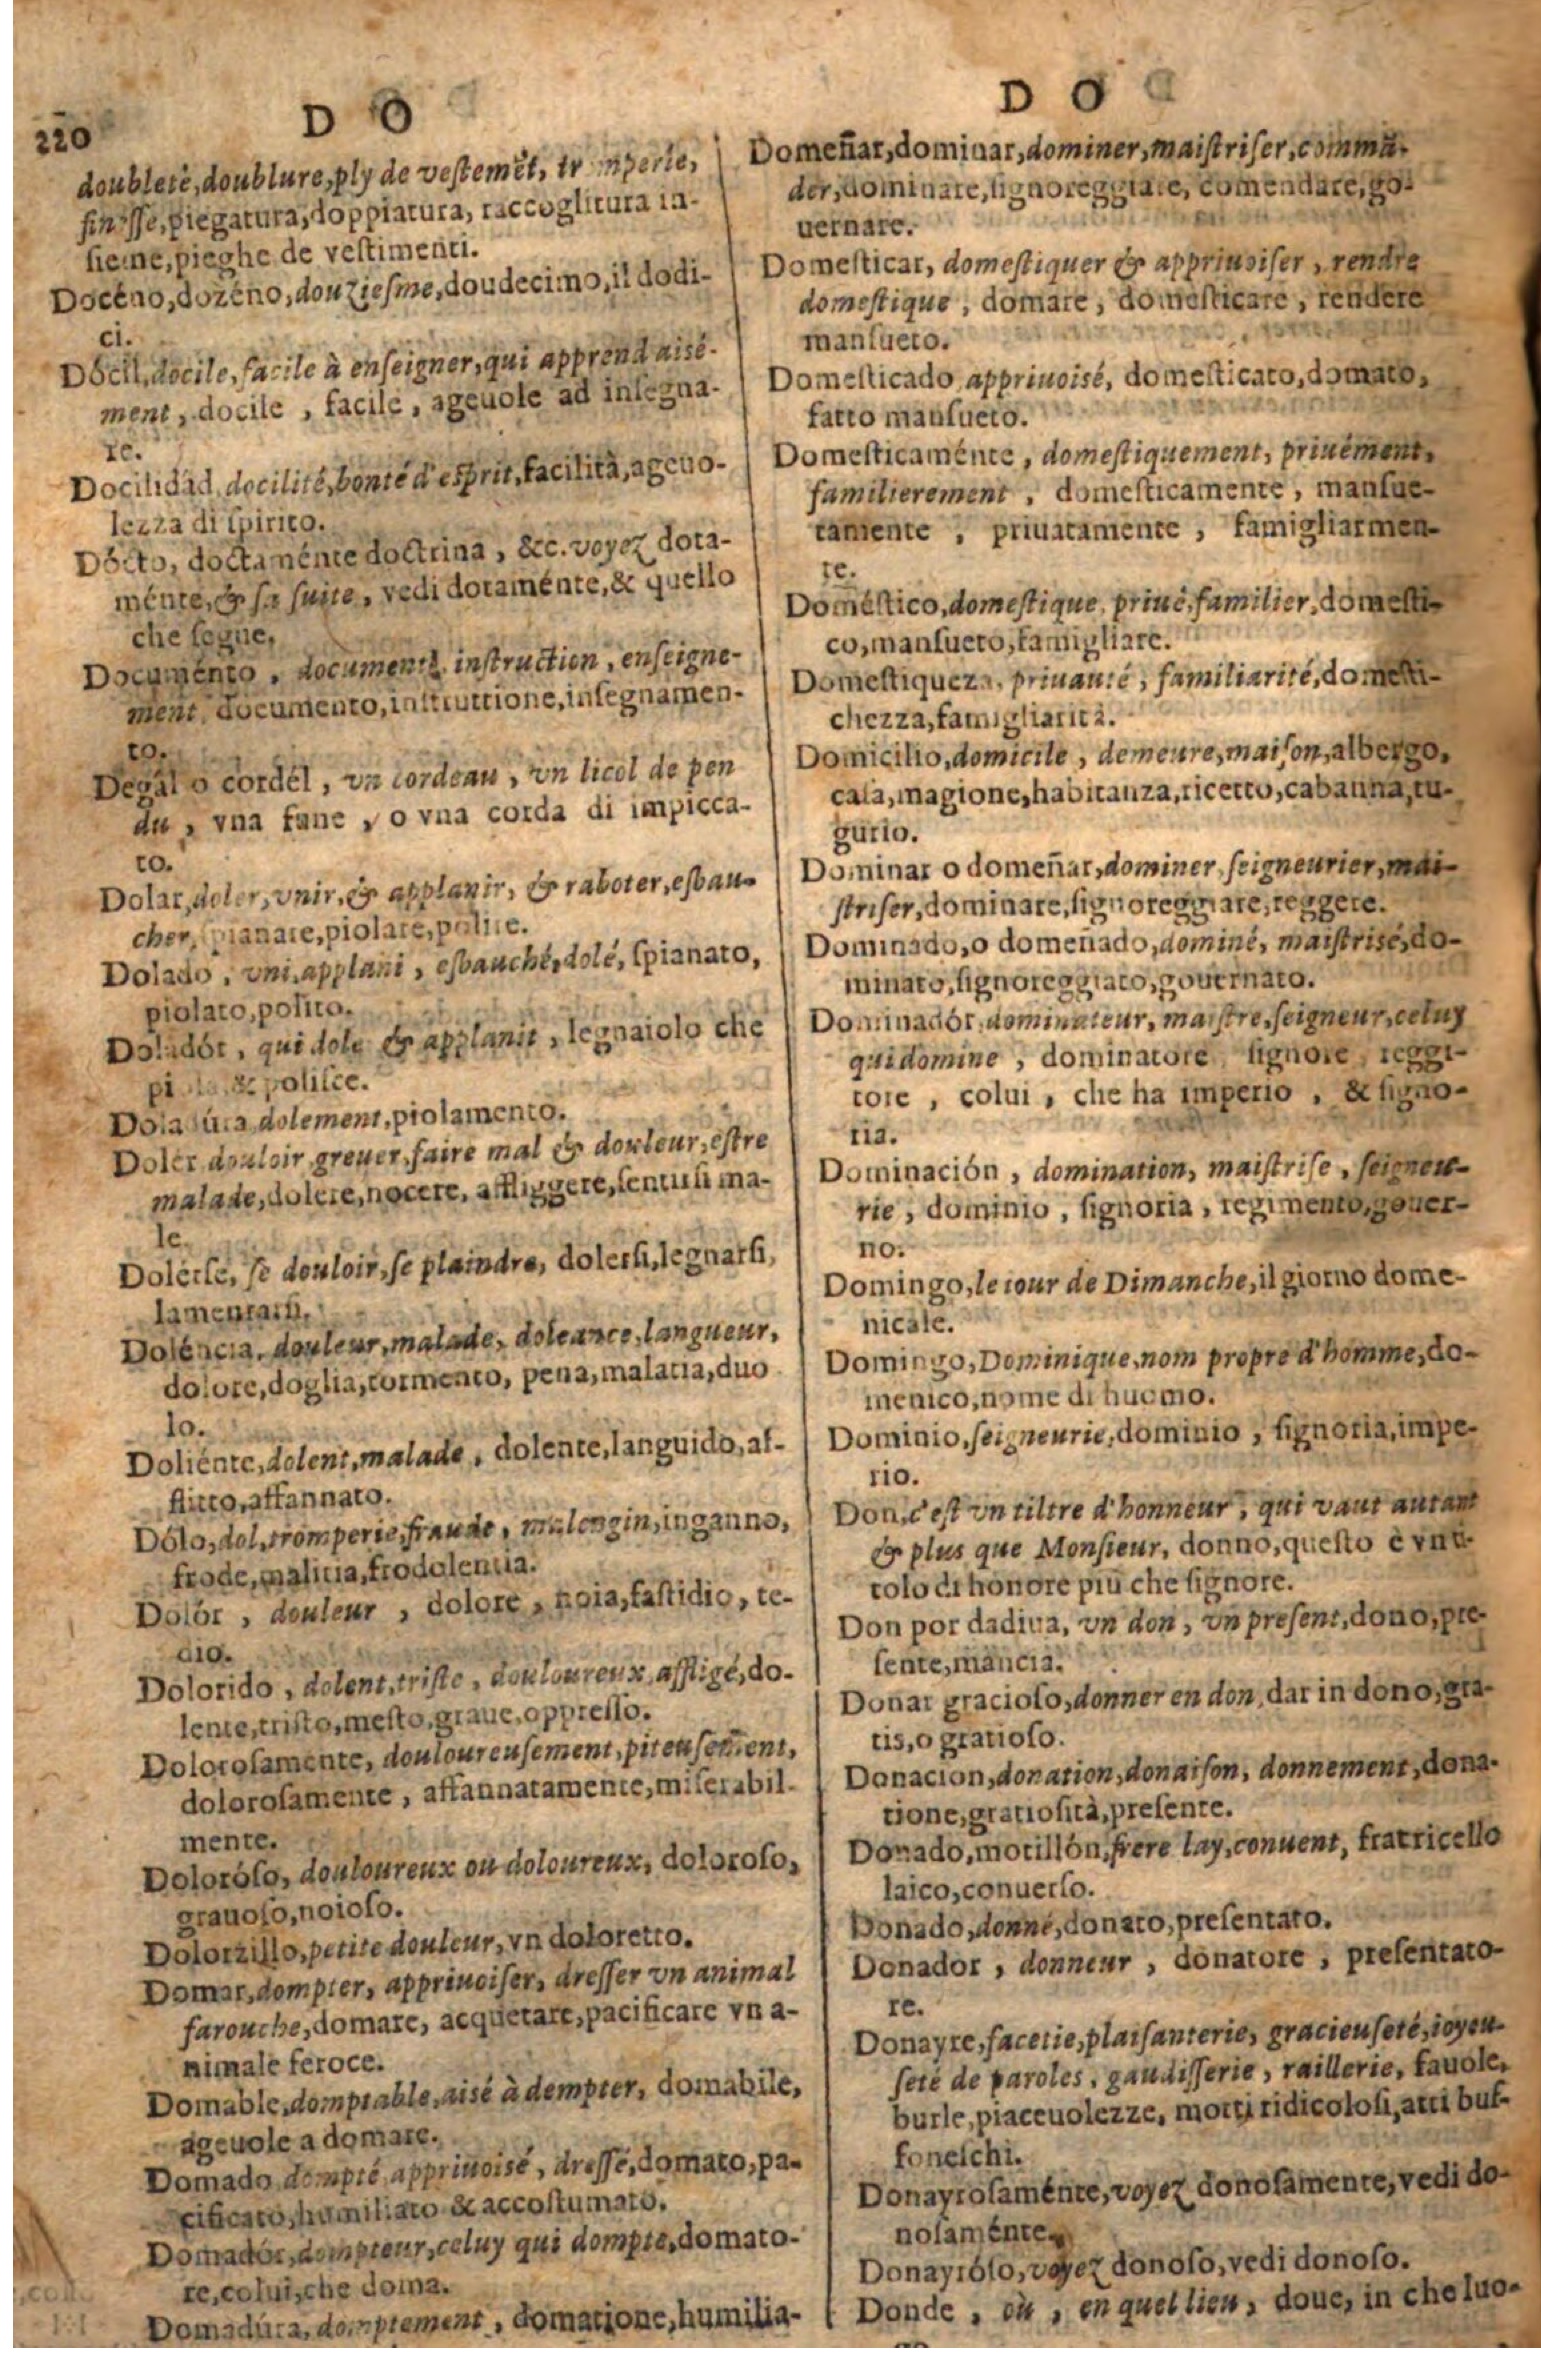 220
D O
doubletè, doublure, ply de vestemẽt, tromperie,
finesse, piegatura, doppiatura, raccoglitura in-
sieme, pieghe de vestimenti.
Docéno, dozéno, douziesme, doudecimo, il dodi-
ci.
Dócil, docile, facile à enseigner, qui apprend aisé-
ment, docile, facile, ageuole ad insegna-
re.
Docilidád, docilité, bonté d'esprit, facilità, ageuo-
lezza di spirito.
Dócto, doctaménte doctrina, &c. voyez dota-
ménte, & sa suite, vedi dotaménte, & quello
che segue.
Documénto, document, instruction, enseigne-
ment, documento, instruttione, insegnamen-
to.
Degál o cordél, vn cordeau, vn licol de pen
du, vna fune, o vna corda di impicca-
to.
Dolar, doler, vnir, & applanir, & raboter, esbau-
cher, spianare, piolare, polire.
Dolado, vni, applani, esbauché, dolé, spianato,
piolato, polito.
Doladór, qui dole & applanit, legnaiolo che
piola & polisce.
Doladúra dolement, piolamento.
Doler douloir, greuer, faire mal & douleur, estre
malade, dolere, nocere, affliggere, sentirsi ma-
le.
Dolerse, se douloir, se plaindre, dolersi, legnarsi,
lamentarsi.
Doléncia, douleur, malade, doleance, langueur,
dolore, doglia, tormento, pena, malatia, duo
lo.
Doliénte, dolent, malade, dolente, languido, af-
flitto, affannato.
Dólo, dol, tromperie, fraude, malengin, inganno,
frode, malitia, frodolentia.
Dolór, douleur, dolore, noia, fastidio, te-
dio.
Dolorido, dolent, triste, douloureux, affligé, do-
lente, tristo, mesto, graue, oppresso.
Dolorosamente, douloureusement, piteusement,
dolorosamente, affannatamente, miserabil-
mente.
Doloróso, douloureux ou doloureux, doloroso,
grauoso, noioso.
Dolorzillo, petite douleur, vn doloretto.
Domar, dompter, appriuoiser, dresser vn animal
farouche, domare, acquetare, pacificare vn a-
nimale feroce.
Domable, domptable, aisé à dempter, domabile,
ageuole a domare.
Domado dompté appriuoisé, dressé, domato, pa-
cificato, humiliato & accostumato.
Domadór, dompteur, celuy qui dompte, domato-
re, colui, che doma.
Domadúra, domptement, domatione, humilia-
D O
Domeñar, dominar, dominer, maistriser, commã-
der, dominare, signoreggiare, comendare, go-
uernare.
Domesticar, domestiquer & appriuoiser, rendre
domestique, domare, domesticare, rendere
mansueto.
Domesticado, appriuoisé, domesticato, domato,
fatto mansueto.
Domesticaménte, domestiquement, priuément,
familierement, domesticamente, mansue-
tamente, priuatamente, famigliarmen-
te.
Doméstico, domestique, priué, familier, domesti-
co, mansueto, famigliare.
Domestiqueza, priuauté, familiarité, domesti-
chezza, famigliarità.
Domicilio, domicile, demeure, maison, albergo,
casa, magione, habitanza, ricetto, cabanna, tu-
gurio.
Dominar o domeñar, dominer, seigneurier, mai-
striser, dominare, signoreggiare, reggere.
Dominado, o domeñado, dominé, maistrisé, do-
minato, signoreggiato, gouernato.
Dominadór, dominateur, maistre, seigneur, celuy
qui domine, dominatore, signore, reggi-
tore, colui, che ha imperio, & signo-
ria.
Dominación, domination, maistrise, seigneu-
rie, dominio, signoria, regimento, gouer-
no.
Domingo, le iour de Dimanche, il giorno dome-
nicale.
Domingo, Dominique, nom propre d'homme, do-
menico, nome di huomo.
Dominio, seigneurie, dominio, signoria, impe-
rio.
Don, c'est vn tiltre d'honneur, qui vaut autant
& plus que Monsieur, donno, questo è vn ti-
tolo di honore più che signore.
Don por dadiua, vn don, vn present, dono, pre-
sente, mancia.
Donar gracioso, donner en don, dar in dono, gra-
tis, o gratioso.
Donacion, donation, donaison, donnement, dona-
tione, gratiosità, presente.
Donado, motillón, frere lay, conuent, fratricello
laico, conuerso.
Donado, donné, donato, presentato.
Donador, donneur, donatore, presentato-
re.
Donayre, facetie, plaisanterie, gracieuseté, ioyeu-
seté de paroles, gaudisserie, raillerie, fauole,
burle, piaceuolezze, motti ridicolosi, atti buf-
foneschi.
Donayrosaménte, voyez donosamente, vedi do-
nosaménte.
Donayróso, voyez donoso, vedi donoso.
Donde, où, en quel lieu, doue, in che luo-